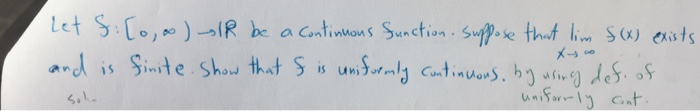 Let f:[0,∞)→ℝ be a continuous function. suppose that lim x→∞ f(x) exists
and is finite. show that f is uniformly continuous. by using def. of
sol. uniformly cont.